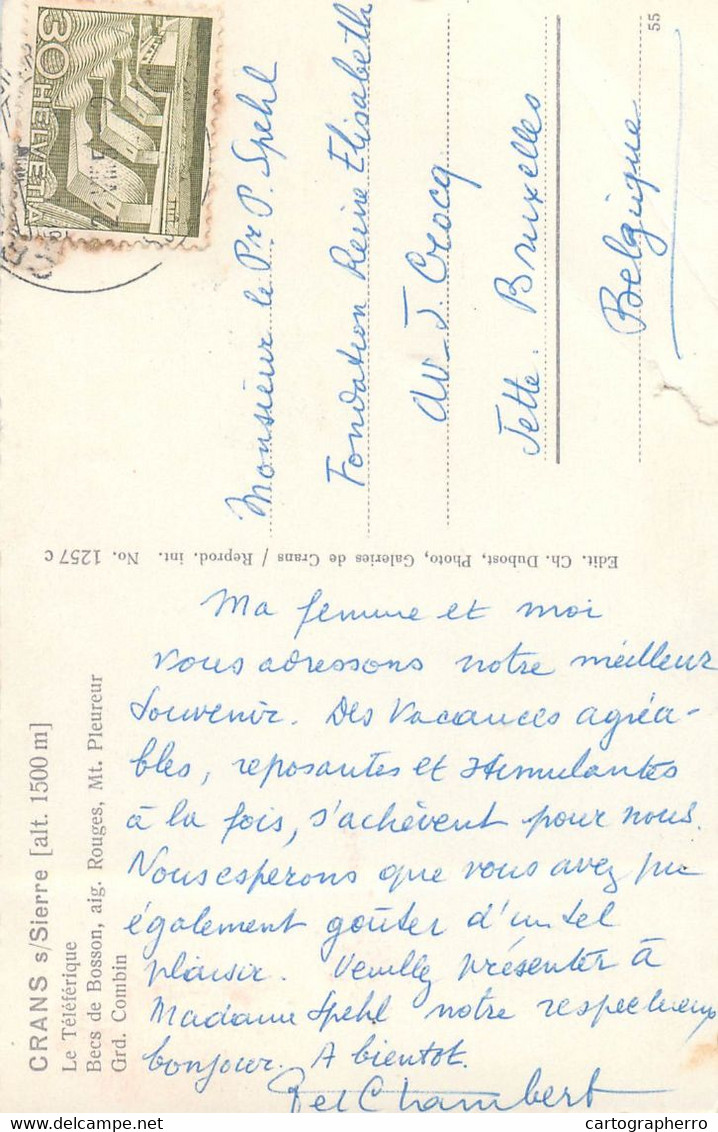 CRANS s/Sierre [alt. 1500 m]
Le Téléférique
Becs de Bosson, aig. Rouges, Mt. Pleureur
Grd. Combin
Ma femme et moi
vous adressons notre meilleur
souvenir. Des vacances agréa-
bles, reposantes et stimulantes
à la fois, s'achèvent pour nous.
Nous esperons que vous avez pu
également goûter d'un tel
plaisir. Veuillez présenter à
Madame Spehl notre respectueux
bonjour. A bientot.
Chambert
Edit. Ch. Dubost, Photo, Galeries de Crans / Reprod. int. No. 1257 c
30 HELVETIA
Monsieur le Pr P. Spehl
Fondation Reine Elisabeth
Av. J. Crocq
Jette. Bruxelles
Belgique
55
cartographerro